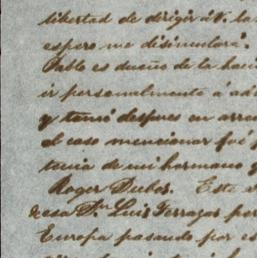 libertad de dirigir á V. la
espero me disimulará.
Pablo es dueño de la haci
ir personalmente á ad
y tomó despues en arre
el caso mencionar fué p
tencia de mi hermano y
Roger Dubos. Este
desa Sr. Luis Terrazas per
Europa pasando por es